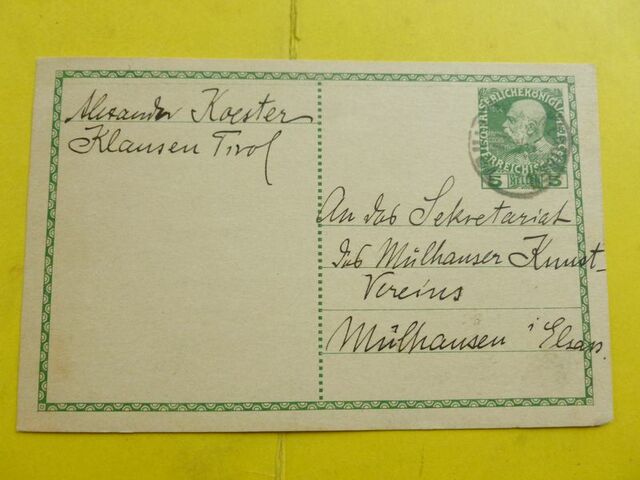 Alexander Koester
Klausen Tirol
KAISERLICHEKÖNIGLICHE
ÖSTERREICHISCHE
5 5
An das Sekretariat
des Mülhauser Kunst-
Vereins
Mülhausen i Elsass.